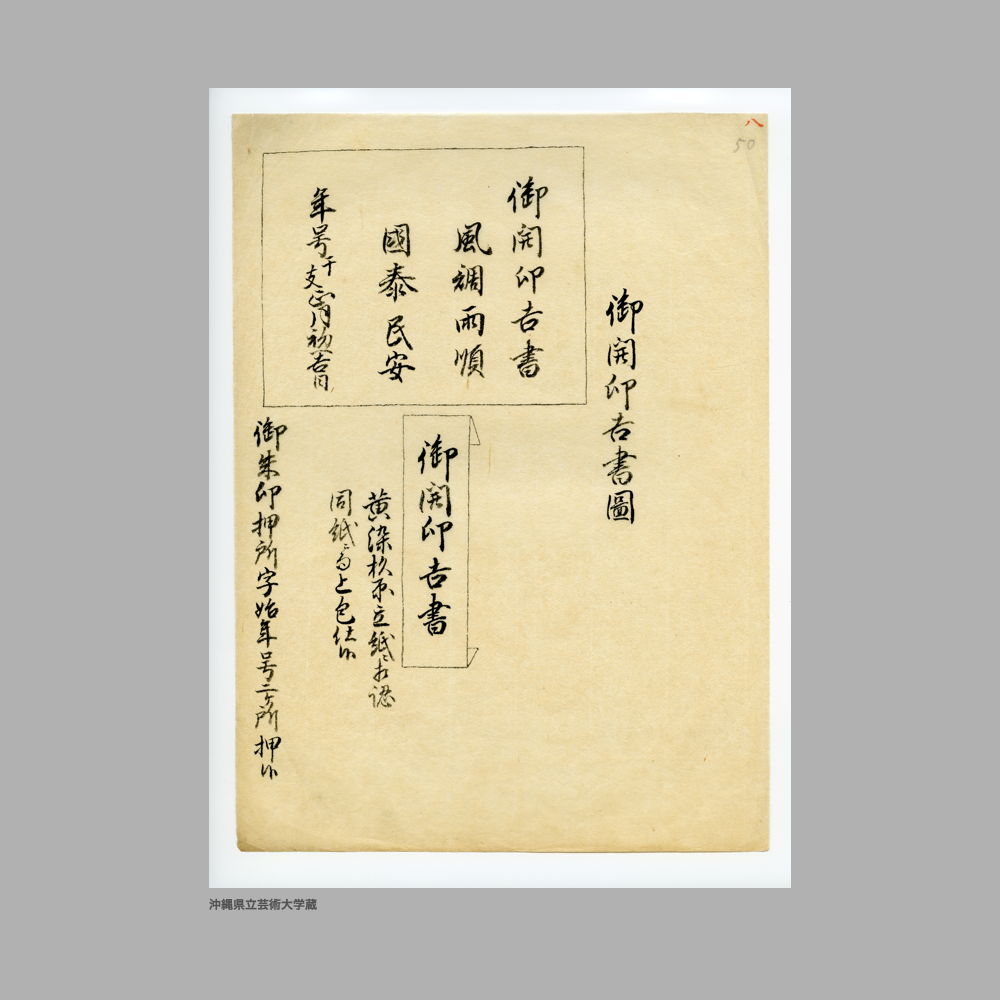 八
50
御開印吉書圖
御開印吉書
風調雨順
國泰民安
年号干支正月初吉日
御開印吉書
黄染杉原立紙ニ相認
同紙ニ而上包仕候
御朱印押所字始年号二ヶ所押候
沖縄県立芸術大学蔵